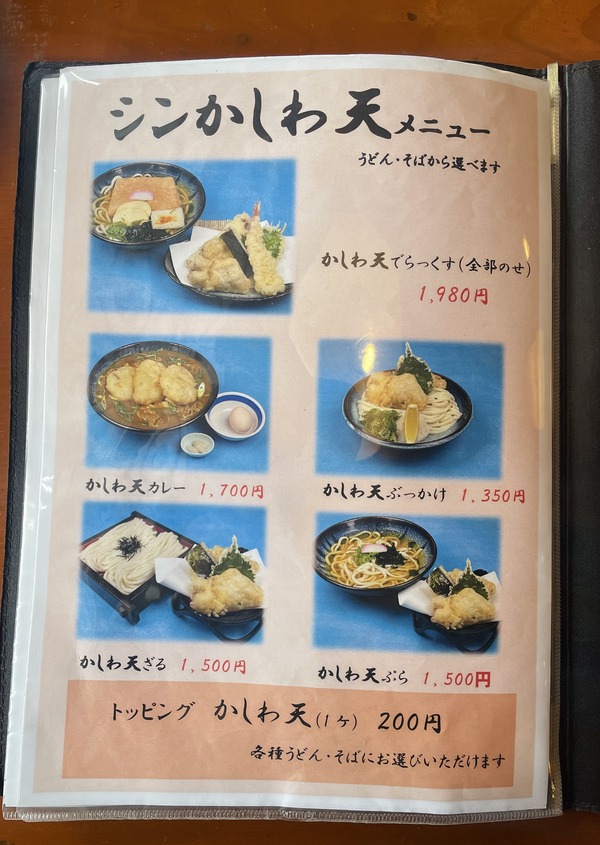 シンかしわ天メニュー
うどん・そばから選べます
かしわ天でらっくす(全部のせ)
1,980円
かしわ天カレー 1,700円
かしわ天ぶっかけ 1,350円
かしわ天ざる 1,500円
かしわ天ぷら 1,500円
トッピング かしわ天(1ケ) 200円
各種うどん・そばにお選びいただけます